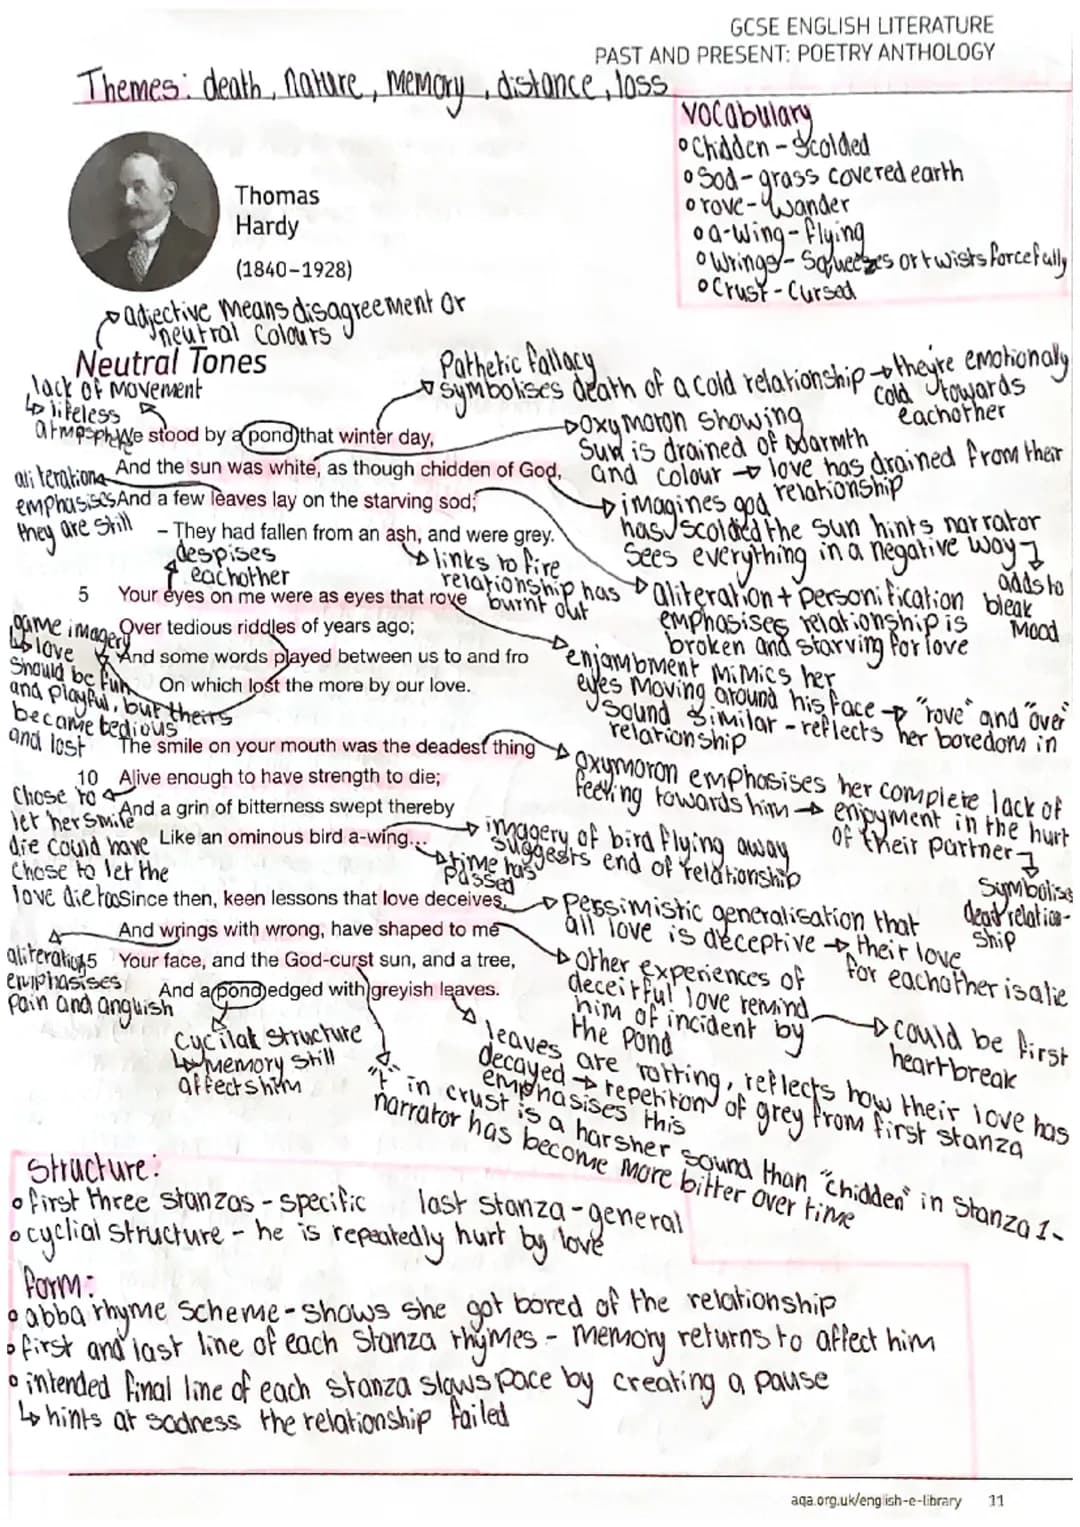 GCSE ENGLISH LITERATURE
PAST AND PRESENT: POETRY ANTHOLOGY
Themes: death, nature, memory, distance, loss
Vocabulary
Chidden - Scolded
Sod - grass covered earth
rove - Wander
a-wing - flying
Wrings - Squeezes or twists forcefully
Crust - Cursed
Thomas
Hardy
(1840–1928)
adjective means disagreement or
neutral colours
Neutral Tones
lack of movement
lifeless
atmosphere
Pathetic fallacy
symbolises death of a cold relationship → they're emotionally
cold towards
eachother
We stood by a pond that winter day,
And the sun was white, as though chidden of God,
And a few leaves lay on the starving sod;
– They had fallen from an ash, and were grey.
oxymoron showing
sun is drained of warmth
and colour → love has drained from their
relationship
aliteration
emphasises
they are still
imagines god
has scolded the sun hints narrator
sees everything in a negative way
adds to
bleak
mood
despises
eachother
links to fire
relationship has
burnt out
aliteration + personification
emphasises relationship is
broken and starving for love
5 Your eyes on me were as eyes that rove
Over tedious riddles of years ago;
And some words played between us to and fro
On which lost the more by our love.
game imagery
love
should be fun
and playful, but theirs
became tedious
and lost
enjambment mimics her
eyes moving around his face → "rove" and "over"
sound similar - reflects her boredom in
relationship
The smile on your mouth was the deadest thing
10 Alive enough to have strength to die;
And a grin of bitterness swept thereby
Like an ominous bird a-wing...
Chose to
let her smile
die could have
chose to let the
love die too
oxymoron emphasises her complete lack of
feeling towards him → enjoyment in the hurt
of their partner
Symbolise
dead relation-
ship
imagery of bird flying away
suggests end of relationship
time has
passed
Since then, keen lessons that love deceives,
And wrings with wrong, have shaped to me
5 Your face, and the God-curst sun, and a tree,
And a pond edged with greyish leaves.
aliteration
emphasises
pain and anguish
Pessimistic generalisation that
all love is deceptive → their love
for eachother is a lie
Other experiences of
deceitful love remind
him of incident by
the pond
could be first
heartbreak
Cycilak Structure
memory still
affects him
leaves are rotting, reflects how their love has
decayed → repetiton of grey from first stanza
emphasises this
"t" in crust is a harsher sound than "chidden" in stanza 1-
narrator has become more bitter over time
Structure:
first three stanzas - specific last stanza - general
cyclial structure - he is repeatedly hurt by love
Form:
abba rhyme scheme - shows she got bored of the relationship
first and last line of each stanza rhymes - memory returns to affect him
intended final line of each stanza slows pace by creating a pause
hints at sadness the relationship failed
aqa.org.uk/english-e-library 11